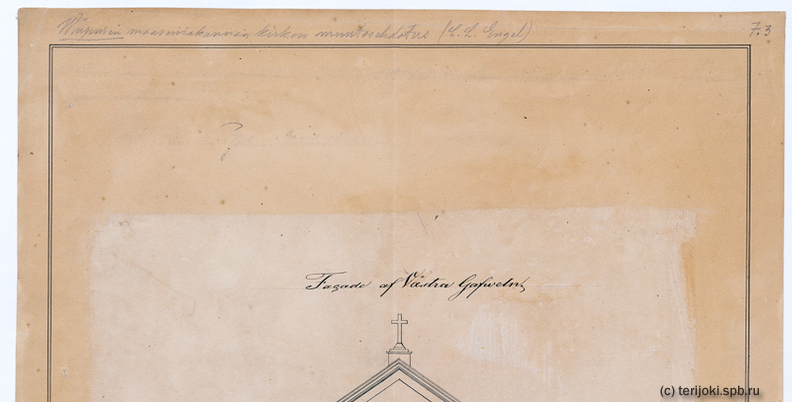 Wiipurin maaseurakunnan kirkon muutosehdotus (C. L. Engel)
7.3
Façade af Västra Gafveln
(c) terijoki.spb.ru